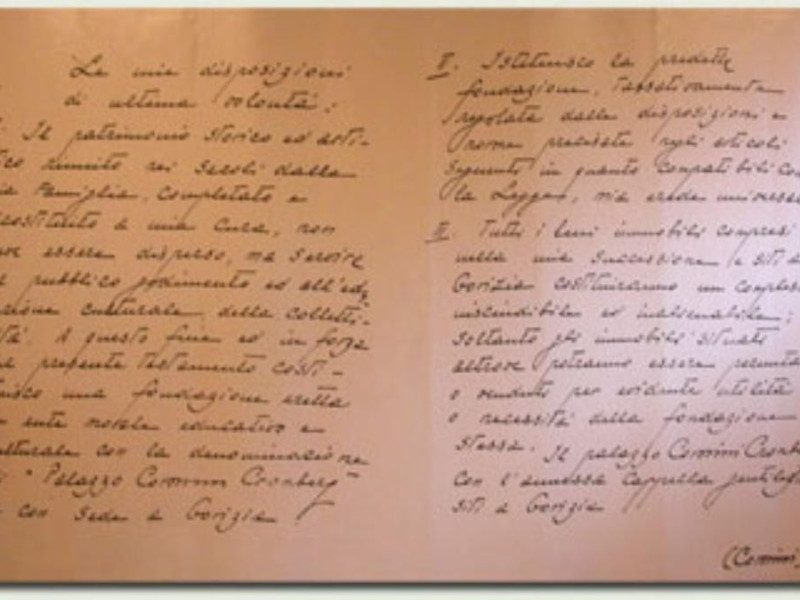 Le mie disposizioni
di ultima volontà:
. Il patrimonio storico ed arti-
co riunito nei secoli dalla
ia Famiglia, completato e
costituito a mia cura, non
ve essere disperso, ma servire
pubblico godimento ed all'edu
azione culturale della colletti-
tà. A questo fine ed in forza
presente testamento costi-
uisco una fondazione eretta
ente morale educativo e
ulturale con la denominazione
i "Palazzo Coronini Cronberg"
con sede a Gorizia.
II. Istituisco la predetta
fondazione, tassativamente
regolata dalle disposizioni e
norme precisate negli articoli
seguenti in quanto compatibili con
la Legge, mia erede universa
II. Tutti i beni immobili compresi
nella mia successione e siti a
Gorizia costituiranno un comples
inscindibile ed inalienabile;
soltanto gli immobili situati
altrove potranno essere permuta
o venduti per evidente utilità
o necessità della fondazione
stessa. Il palazzo Coronini Cronb
con l'annessa Cappella gentiliz
siti a Gorizia
(Coronini